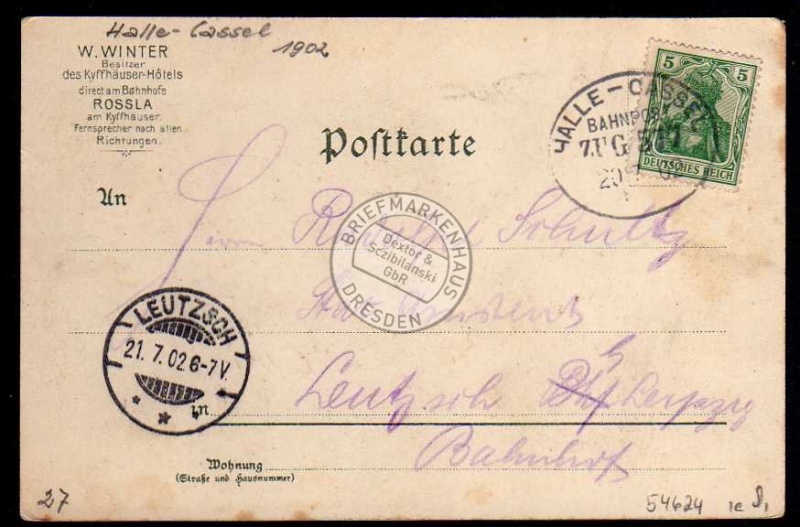 Halle-Cassel
1902
W. WINTER
Besitzer
des Kyffhäuser-Hôtels
direct am Bahnhofe
ROSSLA
am Kyffhäuser.
Fernsprecher nach allen
Richtungen.
5 5
DEUTSCHES REICH
HALLE - CASSEL
BAHNPOS
ZUG
Postkarte
An
Herrn Schultz
BRIEFMARKENHAUS
Dextor &
Sczibilanski
GbR
DRESDEN
LEUTZSCH
21. 7. 02 6-7 V.
in
Leutzsch b/ Leipzig
Bahnhof
Wohnung
(Straße und Hausnummer)
27
54624